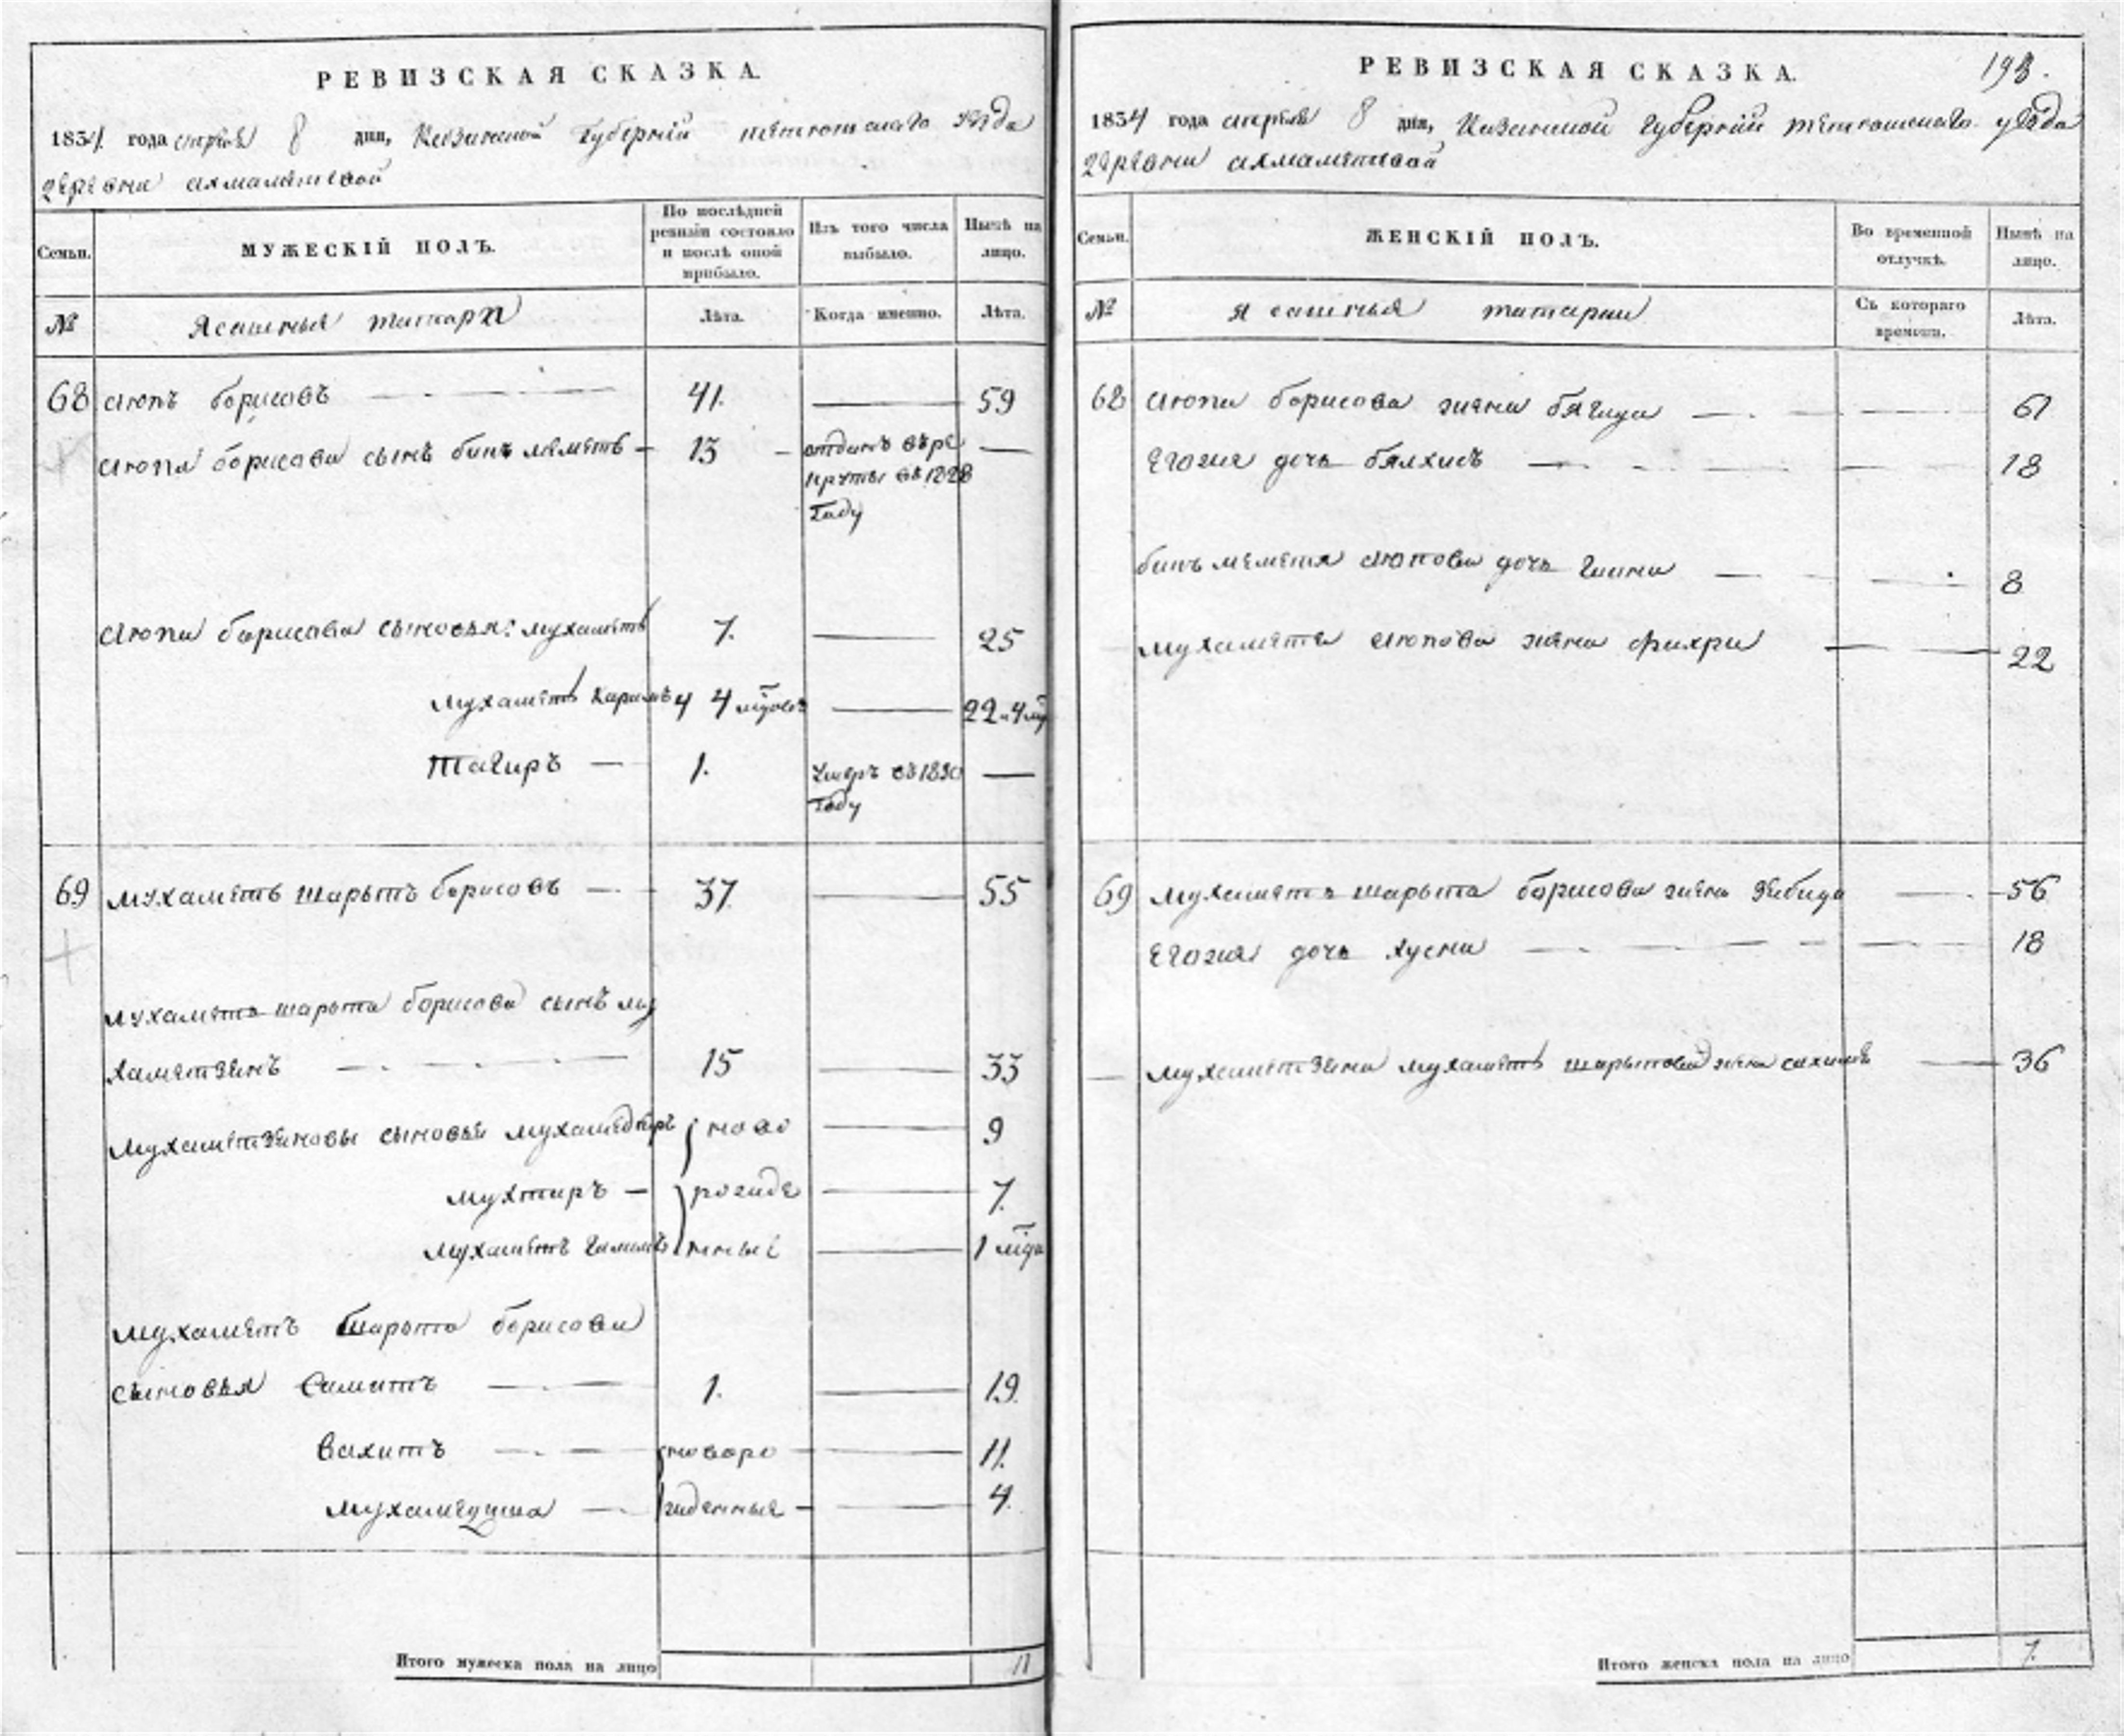 РЕВИЗСКАЯ СКАЗКА.
1834 года апреля 8 дня, Казанской губернiи тетюшскаго уезда
деревни ахмаметевой
Семьи.
МУЖЕСКІЙ ПОЛЪ.
По послѣдней ревизіи состояло и послѣ оной прибыло.
Изъ того числа выбыло.
Нынѣ на лицо.
№
Ясашныя татара
Лѣта.
Когда именно.
Лѣта.
68 аюпъ борисовъ 41. 59
аюпа борисова сынъ бикъ меметъ 13 отданъ въ ре
круты въ 1828
году
аюпа борисова сыновья: мухаметъ 7. 25
мухаметъ Каримъ 4 4 22 4
тагиръ 1. умеръ въ 1830
году
69 мухаметъ шарыпъ борисовъ 37. 55
мухаметъ шарыпа борисова сынъ му
хаметзянъ 15 33
мухаметзяновы сыновья ново 9
мухтаръ рожде 7.
мухаметъ нные 1
мухаметъ шарыпа борисова
сыновья Саматъ 1. 19.
вахитъ новоро 11.
мухамедша жденные 4.
Итого мужеска пола на лицо 11
РЕВИЗСКАЯ СКАЗКА. 193.
1834 года апреля 8 дня, Казанской губернiи тетюшскаго уезда
деревни ахмаметевой
Семьи.
ЖЕНСКІЙ ПОЛЪ.
Во временной отлучкѣ.
Нынѣ на лицо.
№
Ясашныя татарки
Съ котораго времени.
Лѣта.
68 аюпа борисова жена бягида 61
Егожа дочь бялхисъ 18
бикъ меметя аюпова дочь 8
мухаметя аюпова жена фахри 22
69 мухаметъ шарыпа борисова жена 56
Егожа дочь хусна 18
мухаметзяна мухаметъ шарыпова жена 36
Итого женска пола на лицо 7.